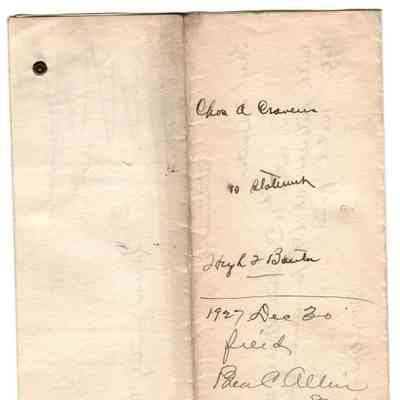 Chas A Cravens
to Statement
Hugh F
1927 Dec 30
filed
Ben C Allin